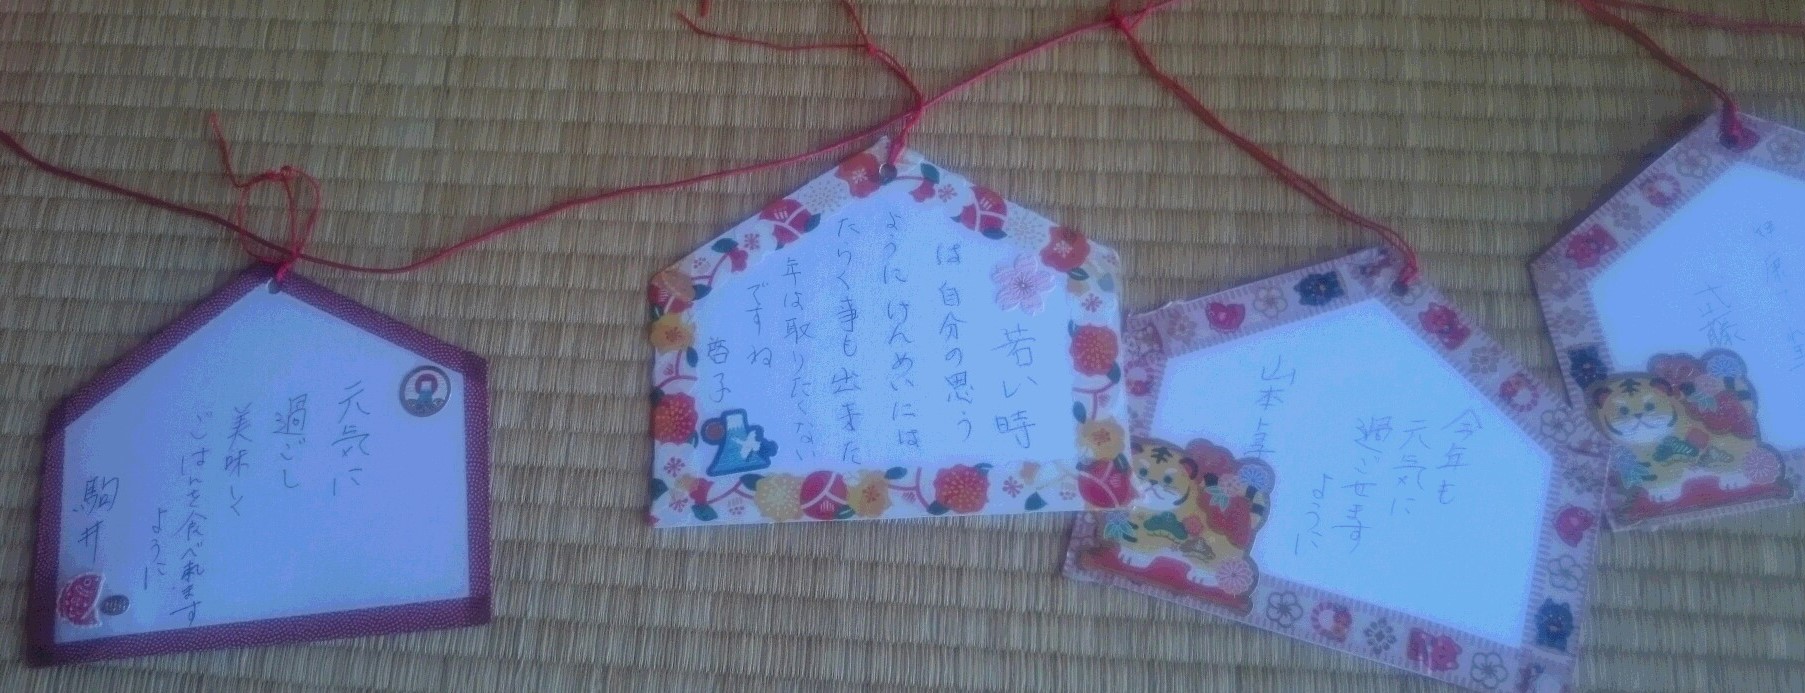 元気に
過ごし
美味しく
ごはんを食べれます
ように
駒井
若い時
は自分の思う
ように けんめいには
たらく事も出来た
年は取りたくない
ですね
啓子
今年も
元気に
過ごせます
ように
山本